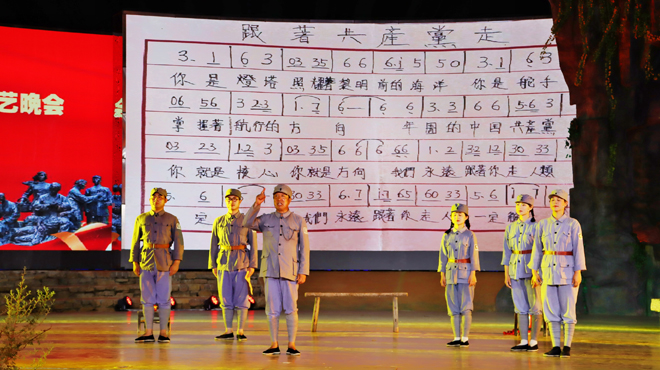 跟著共產黨走
艺晚会
3. 1 | 6 3 | 03 35 | 6 6 | 6.i 5 | 5 0 | 3. 1 | 6 5
你是燈塔 照耀著黎明前的海洋 你是舵手
06 56 | 3 2.3 | 1. 7 | 6— | 6 6 | 3. 3 | 6 6 | 5.6 3
掌握著航行的方向 年 的中国共產黨
03 23 | 1.2 3 | 03 35 | 6 6 | 6 66 | 1. 2 | 32 12 | 30 33
你就是核心 你就是方向 我們永遠跟著你走 人類
6 | 30 33 | 6. 7 | 65 | 60 33 | 5. 6
一定 我們永遠跟著你走 人 一定